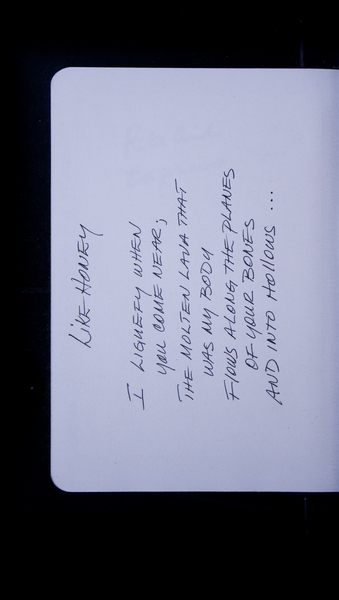 LIKE HONEY
I LIQUEFY WHEN
YOU COME NEAR;
THE MOLTEN LAVA THAT
WAS MY BODY
FLOWS ALONG THE PLANES
OF YOUR BONES
AND INTO HOLLOWS ...